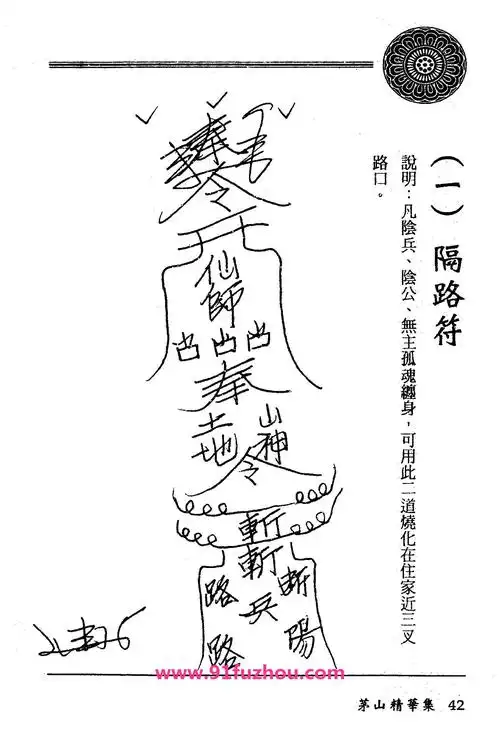 (一) 隔路符
說明：凡陰兵、陰公、無主孤魂纏身，可用此二道燒化在住家近三叉
路口。
奉
令
仙師
奉
土地
山神
令
斬
斬
路
兵
斷
路
陽
www.91fuzhou.com
茅山精華集 42